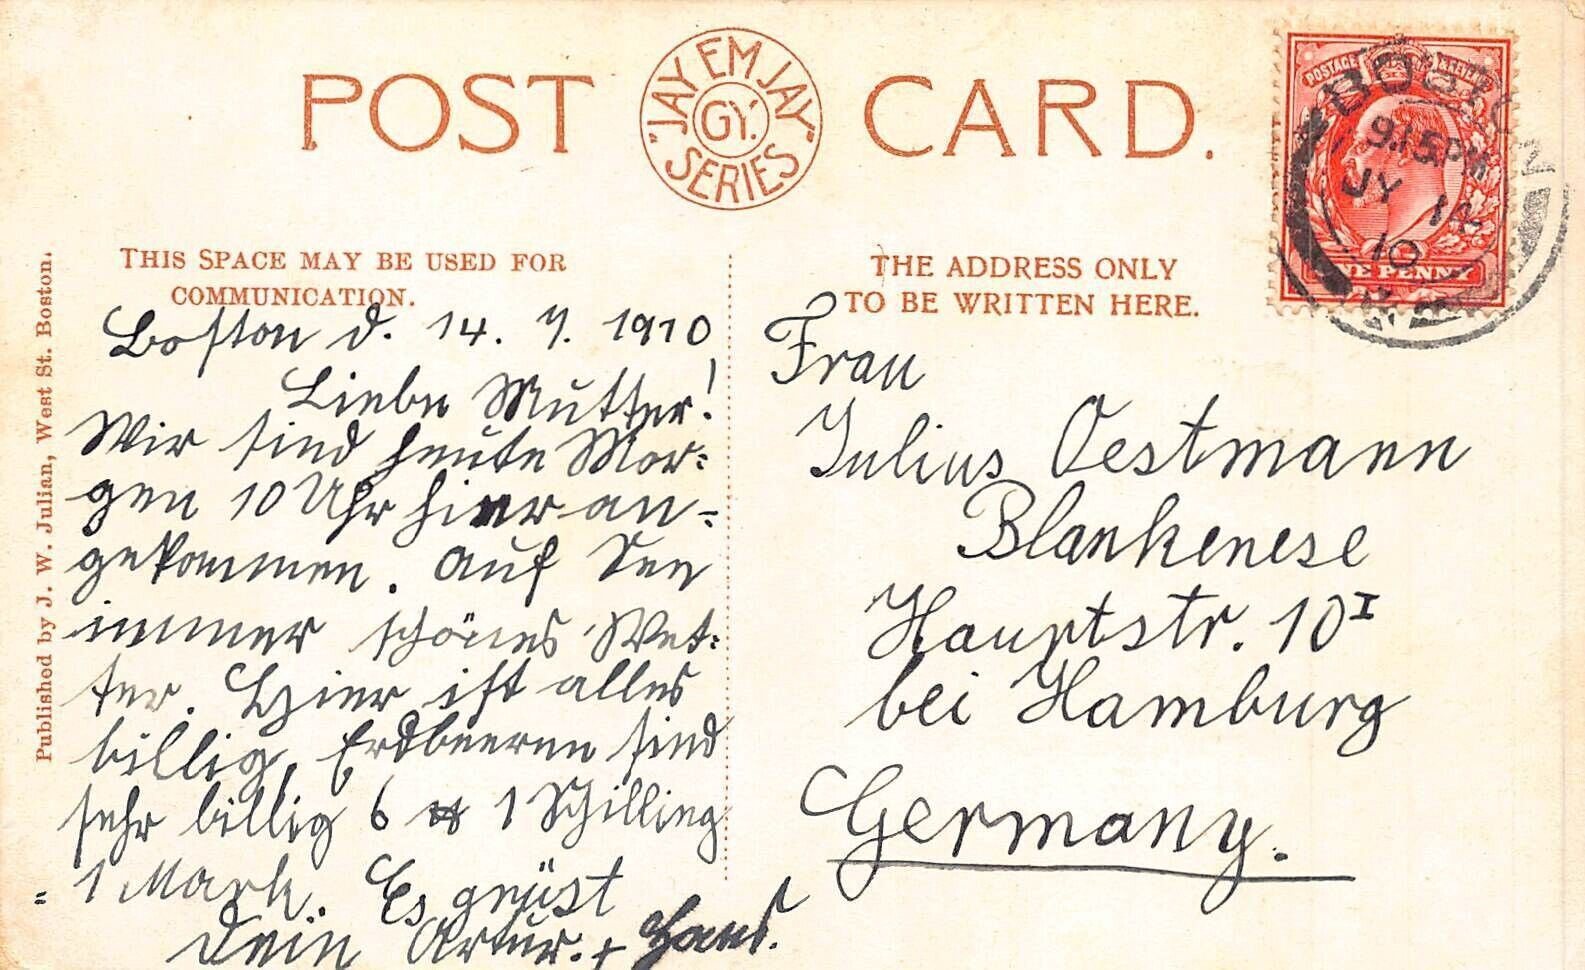 POST CARD.
"JAY EM JAY" SERIES
GY.
POSTAGE & REVENUE
BOSTON
9.15PM
JY 14
10
ONE PENNY
THIS SPACE MAY BE USED FOR
COMMUNICATION.
THE ADDRESS ONLY
TO BE WRITTEN HERE.
Published by J. W. Julian, West St. Boston.
Boston d. 14. 7. 1910
Liebe Mutter!
Wir sind heute Mor=
gen 10 Uhr hier an=
gekommen. Auf See
immer schönes Wet=
ter. Hier ist alles
billig, Erdbeeren sind
sehr billig 6 ℔ 1 Schilling
= 1 Mark. Es grüst
Dein Artur. + Hans.
Frau
Julius Oestmann
Blankenese
Hauptstr. 10 I
bei Hamburg
Germany.